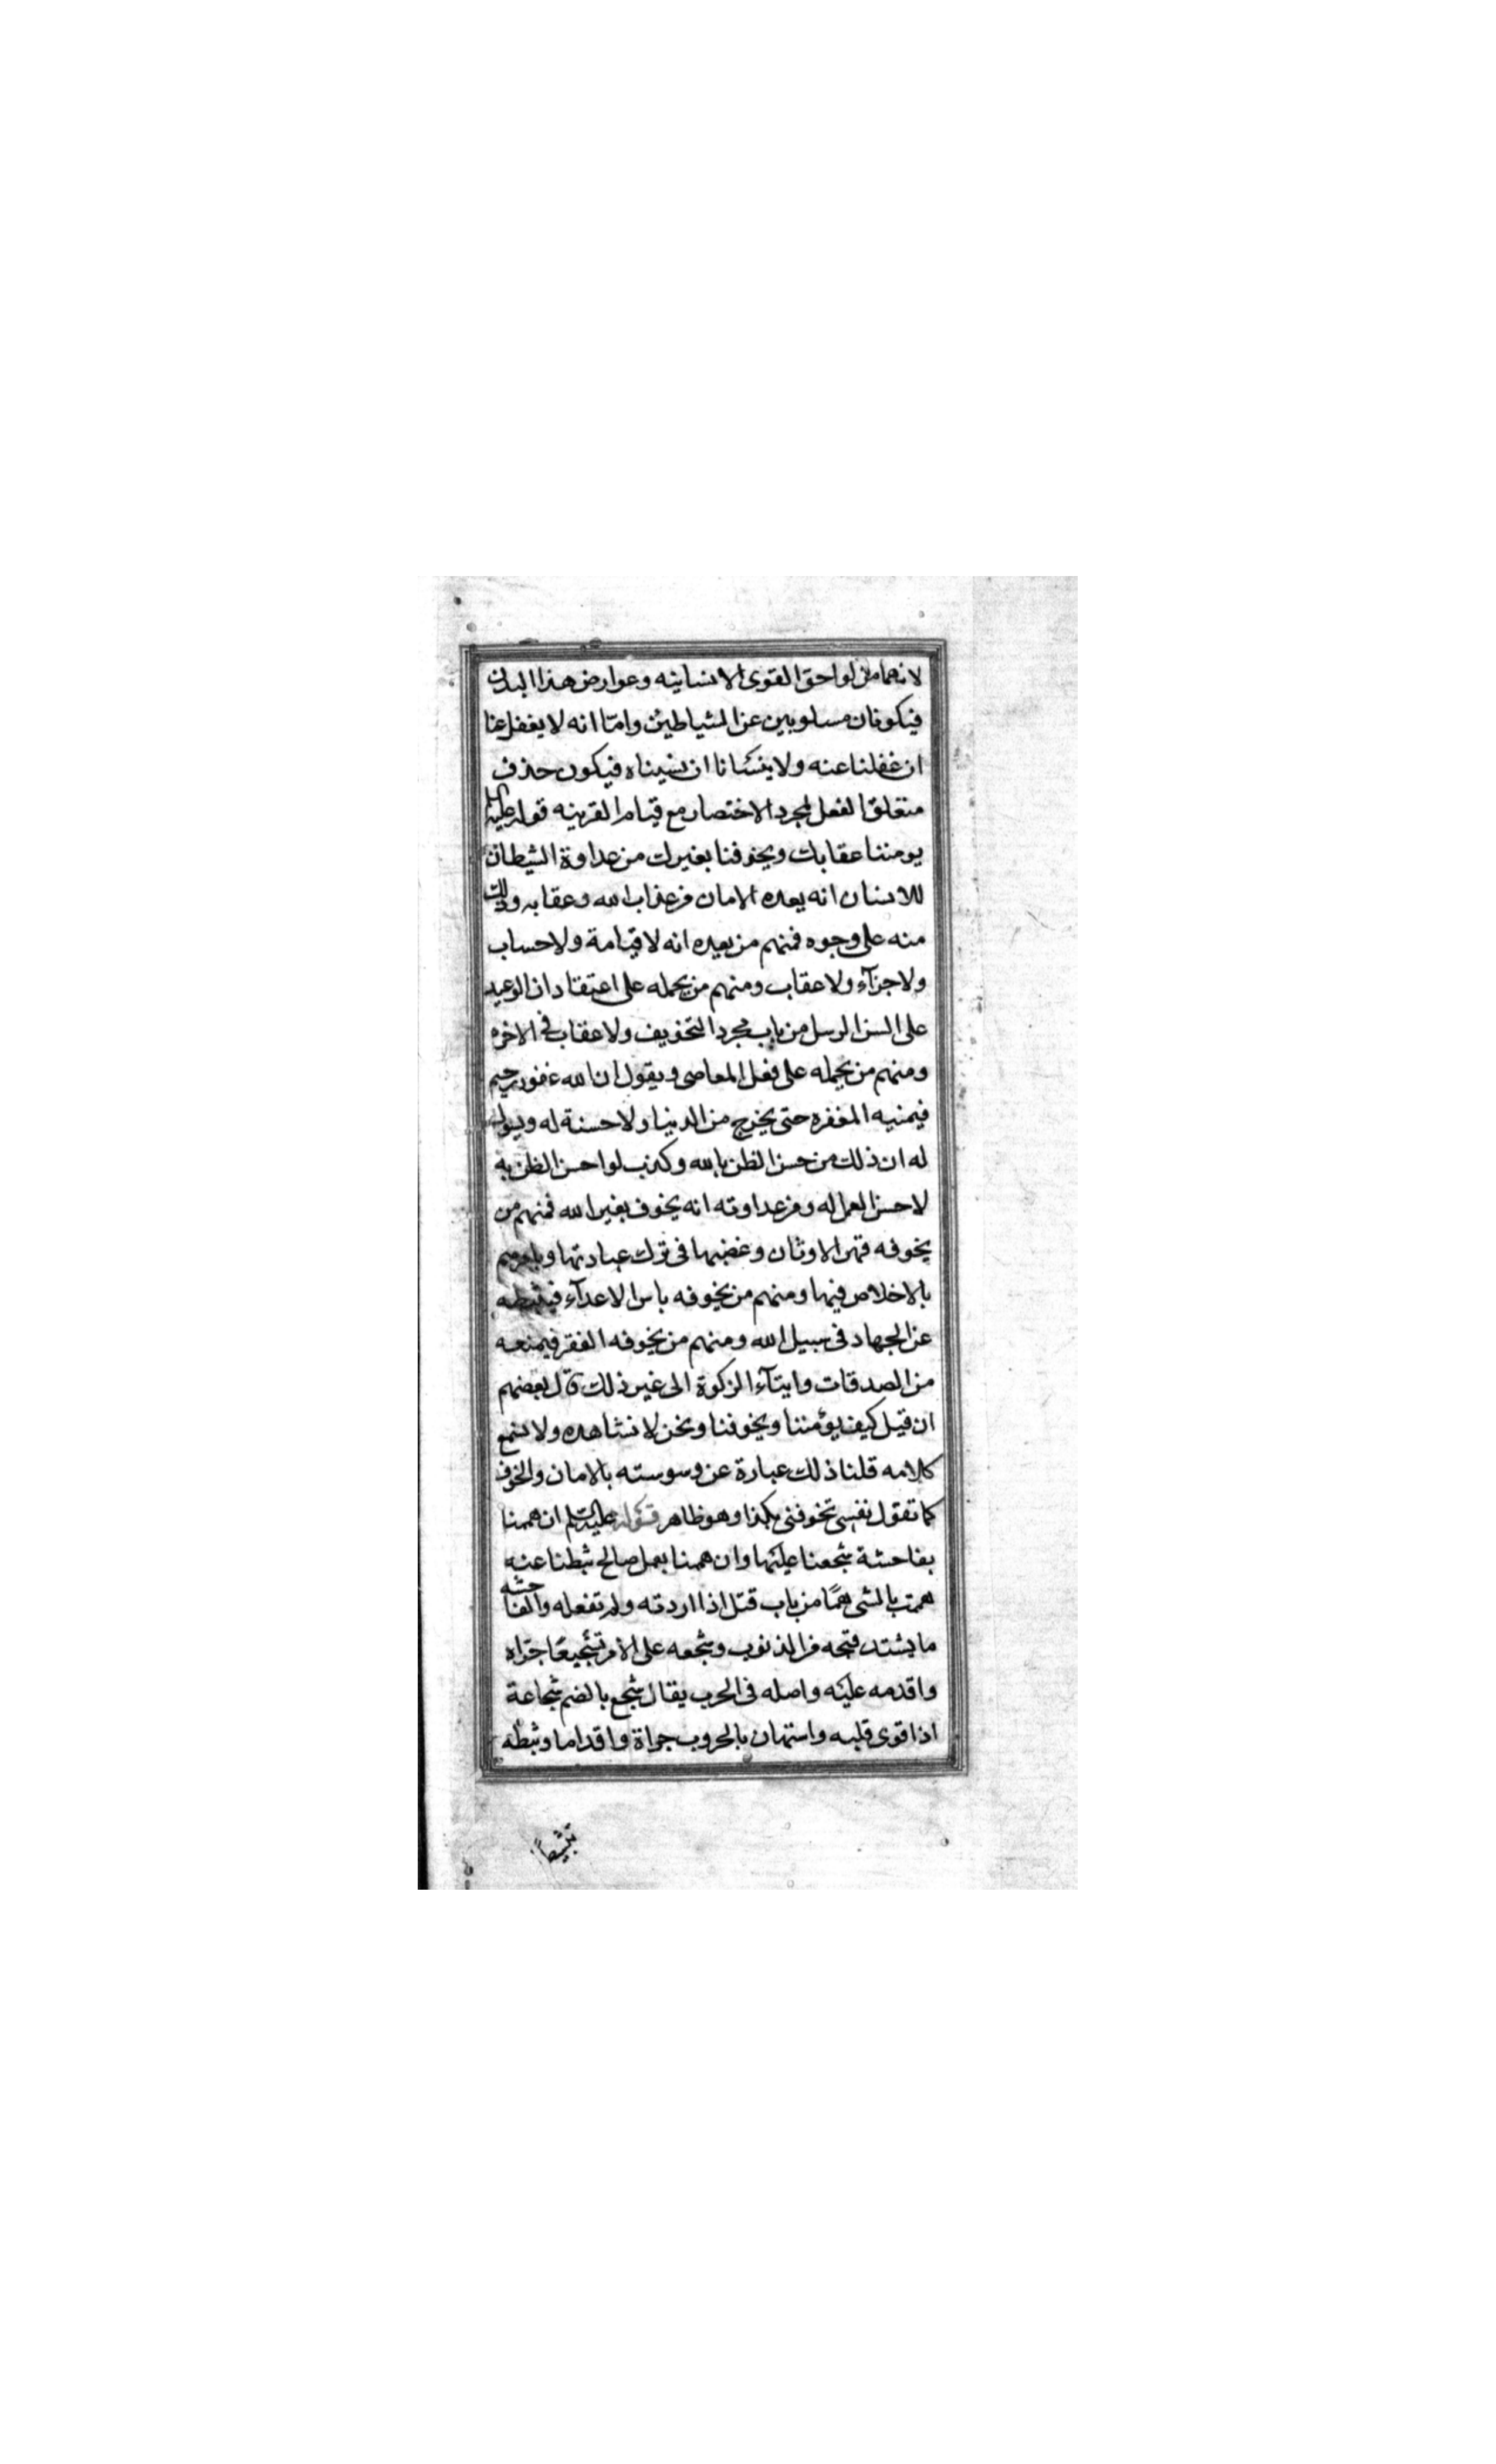 لانهما من لواحق القوى الانسانيه وعوارض هذا البدن
فيكونان مسلوبين عن الشياطين وامّا انه لا يغفل عنا
ان غفلنا عنه ولا ينسانا ان نسيناه فيكون حذف
متعلق الفعل لمجرد الاختصار مع قيام القرينه قوله عليه
يومننا عقابك ويخوفنا بغيرك من عداوة الشيطان
للانسان انه يعده الامان من عذاب الله وعقابه وذلك
منه على وجوه فمنهم من يعده انه لا قيامة ولا حساب
ولا جزآء ولا عقاب ومنهم من يحمله على اعتقاد ان الوعيد
على السن الرسل من باب مجرد التخويف ولا عقاب فى الاخره
ومنهم من يحمله على فعل المعاصى ويقول ان الله غفور رحيم
فيمنيه المغفره حتى يخرج من الدنيا ولا حسنة له ويسول
له ان ذلك من حسن الظن بالله وكذب لو احسن الظن به
لاحسن العمل له ومن عداوته انه يخوف بغير الله فمنهم من
يخوفه قهر الاوثان وغضبها فى ترك عبادتها ويامرهم
بالاخلاص فيها ومنهم من يخوفه باس الاعدآء فيثبطه
عن الجهاد فى سبيل الله ومنهم من يخوفه الفقر فيمنعه
من الصدقات وايتآء الزكوة الى غير ذلك قال بعضهم
ان قيل كيف يؤمننا ويخوفنا ونحن لا نشاهده ولا نسمع
كلامه قلنا ذلك عبارة عن وسوسته بالامان والخوف
كما تقول نفسى تخوفنى بكذا وهو ظاهر قوله عليه السلم ان هممنا
بفاحشة شجعنا عليها وان هممنا بعمل صالح ثبطنا عنه
هممت بالشى همًّا من باب قتل اذا اردته ولم تفعله والفاحشه
ما يشتد قبحه من الذنوب وشجعه على الامر تشجيعًا جرّاه
واقدمه عليه واصله فى الحرب يقال شجع بالضم شجاعة
اذا قوى قلبه واستهان بالحروب جراة واقداما وثبطه
تثبيطاً